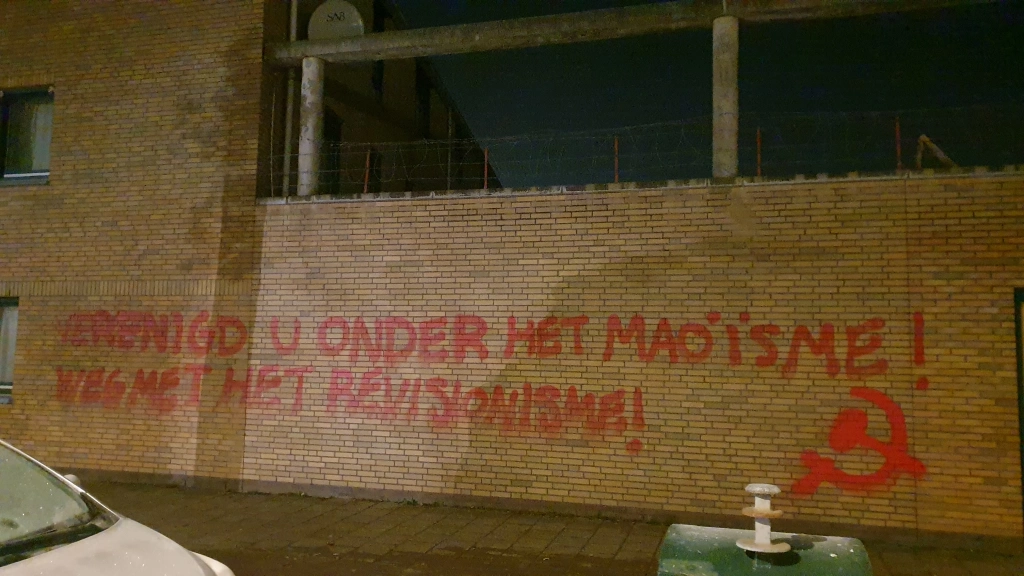 SAB
VERENIGD U ONDER HET MAOÏSME!
WEG MET HET REVISIONISME!